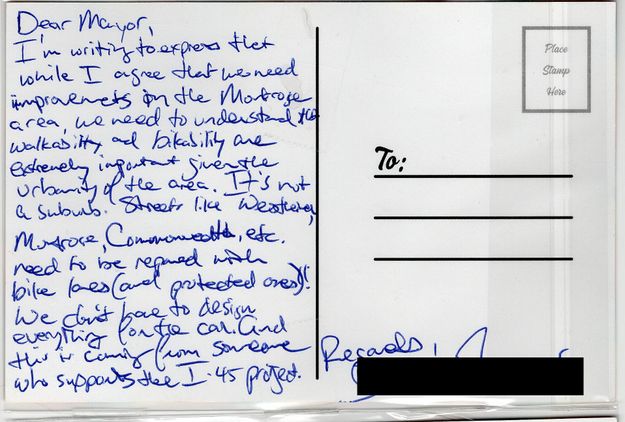 Dear Mayor,
I'm writing to express that
while I agree that we need
improvements in the Montrose
area, we need to understand the
walkability and bikability are
extremely important given the
urbanity of the area. It's not
a suburb. Streets like Westheimer,
Montrose, Commonwealth, etc.
need to be repaved with
bike lanes (and protected ones)!
We don't have to design
everything for the car. And
this is coming from someone
who supports the I-45 project.
Regards,
Place
Stamp
Here
To: